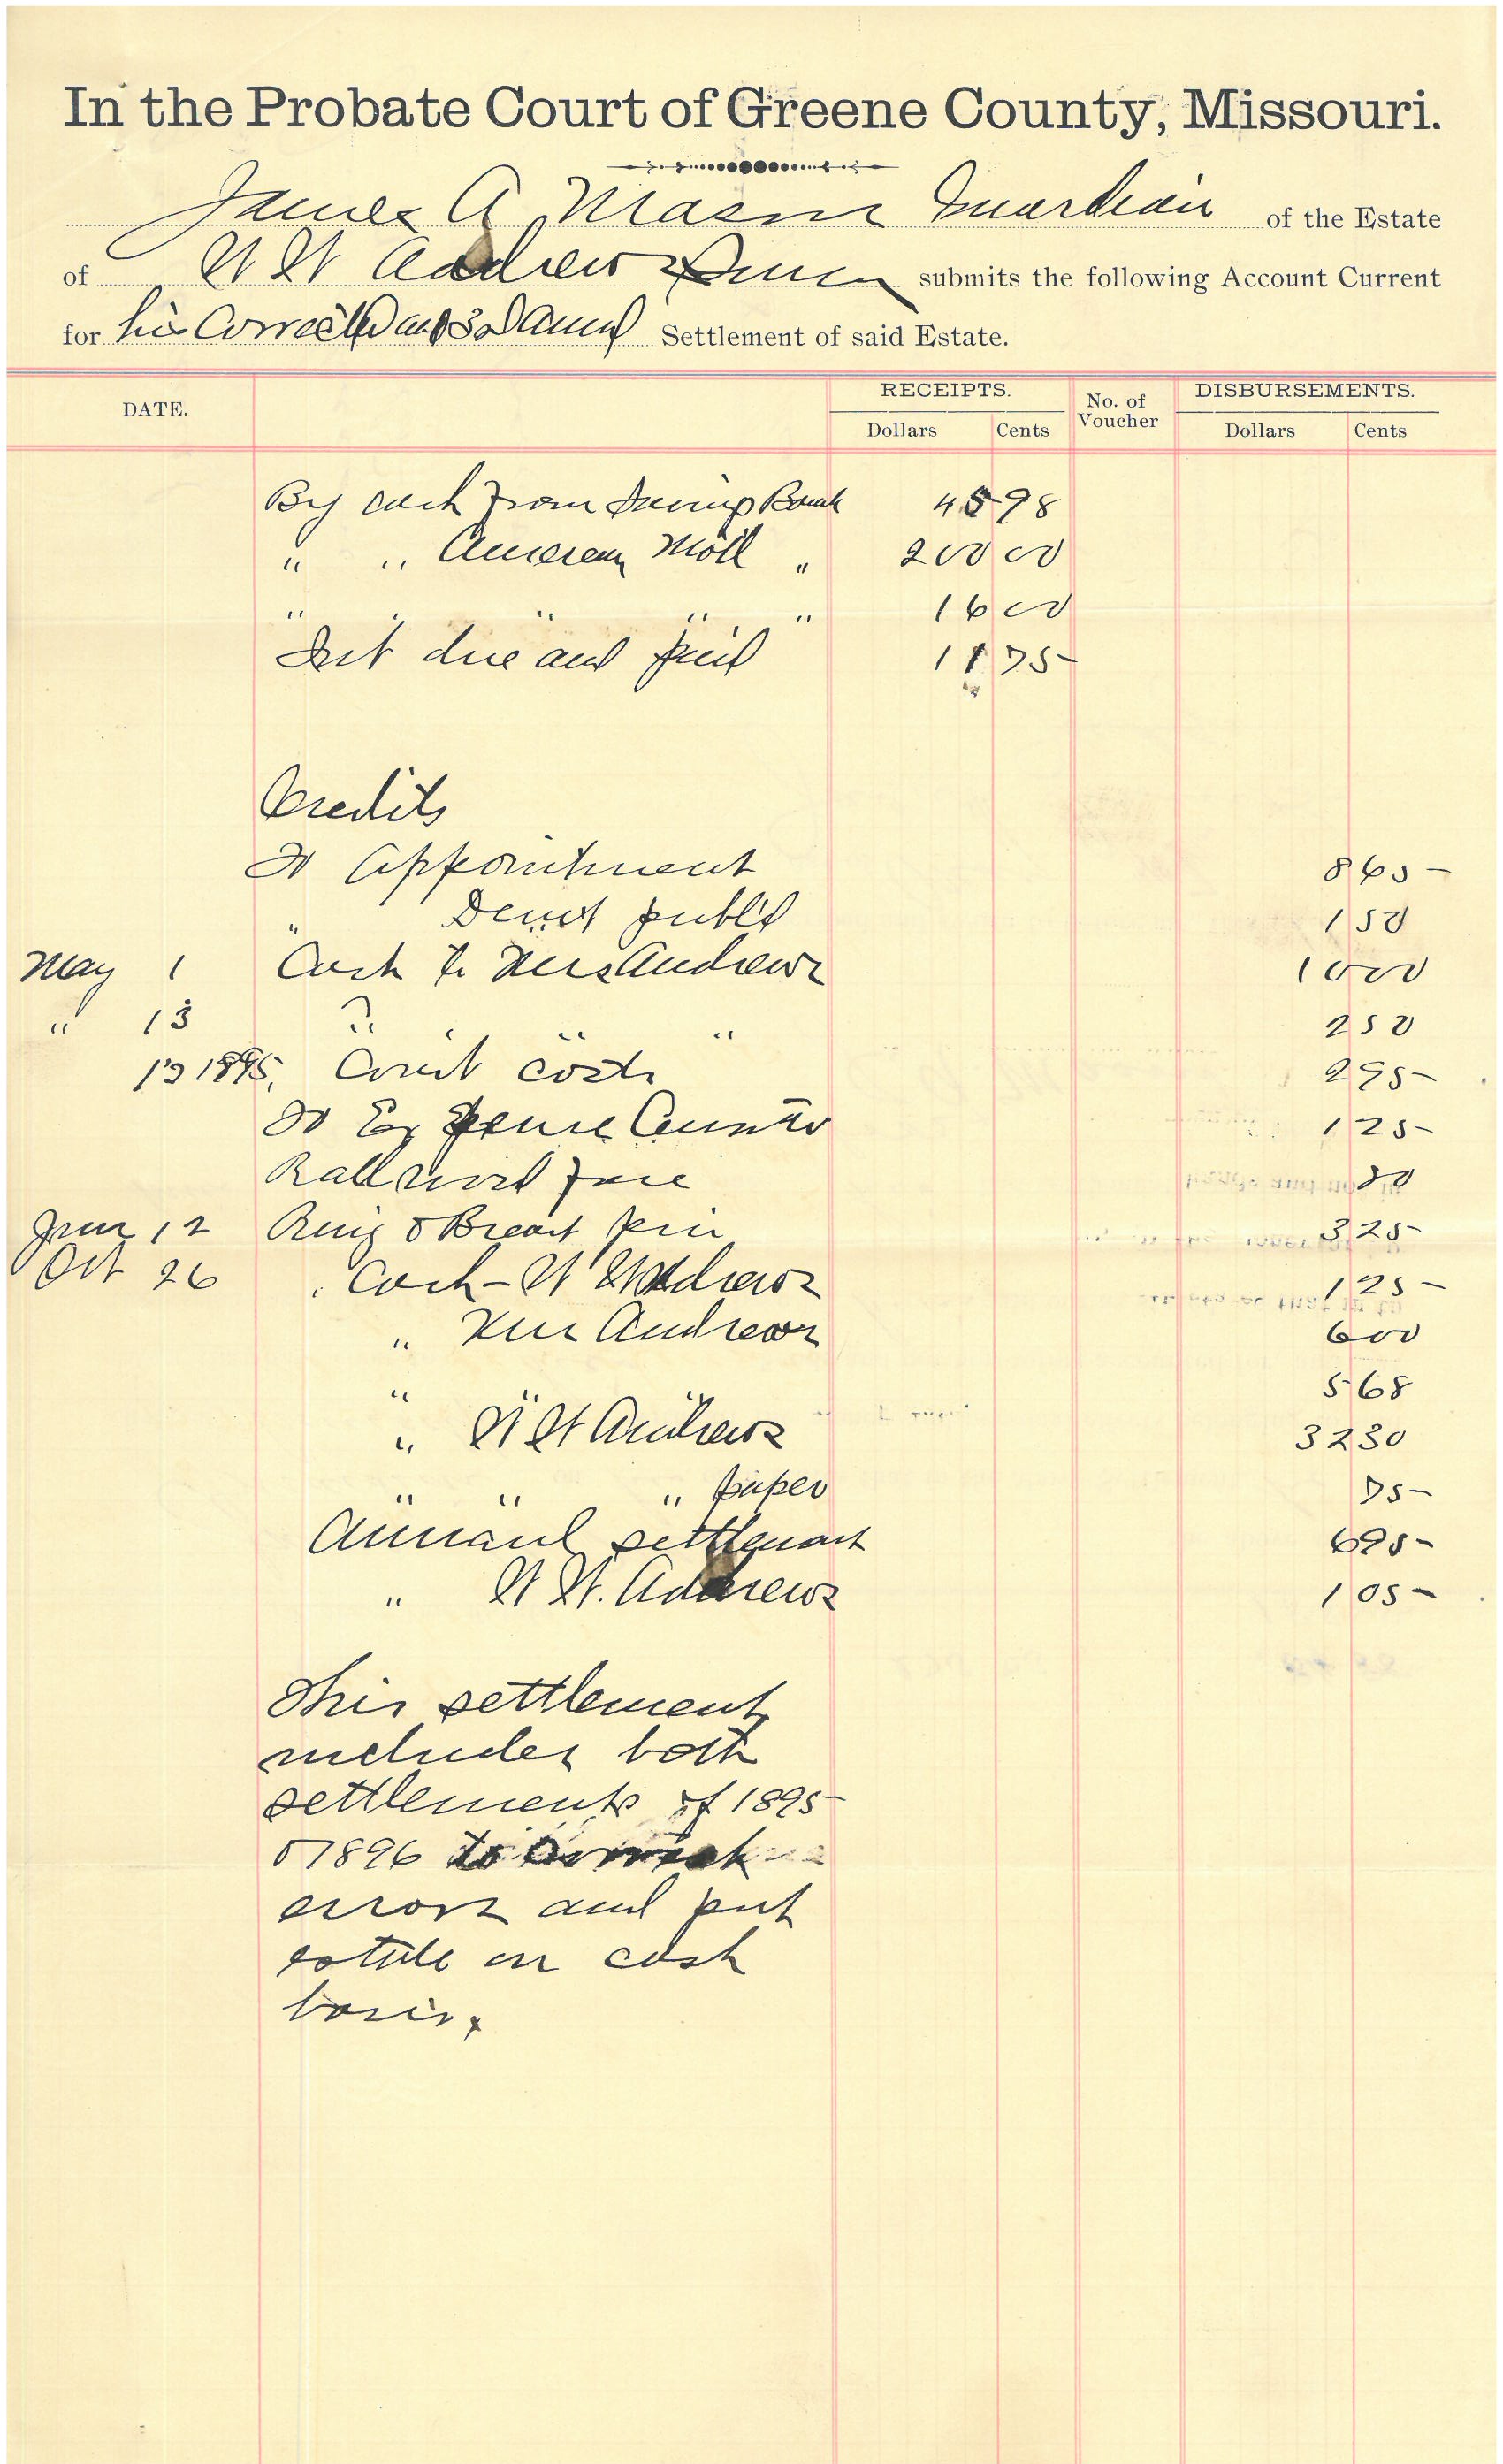 In the Probate Court of Greene County, Missouri.
James A Mason Guardian of the Estate
of W W Andrews submits the following Account Current
for his Corrected and 3d Annul Settlement of said Estate.
DATE. RECEIPTS. No. of Voucher DISBURSEMENTS.
Dollars Cents Dollars Cents
By cash from Savings Bank 45 98
" " American Moll " 200 00
" " " " " 16 00
Int due and paid 11 75
Credits
To Appointment 8 65
" Demt publd 1 50
May 1 Cash to Mrs Andrews 10 00
" 13 " " " 2 50
13 1895, Court costs 2 95
To Expense 1 25
Railroad fare 50
June 12 Ring & Breast pin 3 25
Oct 26 " Cash - W W Andrews 1 25
" Mrs Andrews 6 00
" " 5 68
" W W Andrews 32 30
" " " paper 75
Annual settlement 6 95
" W W. Andrews 1 05
This settlement
includes both
settlements of 1895
& 1896 to correct
errors and put
estate on cash
basis.